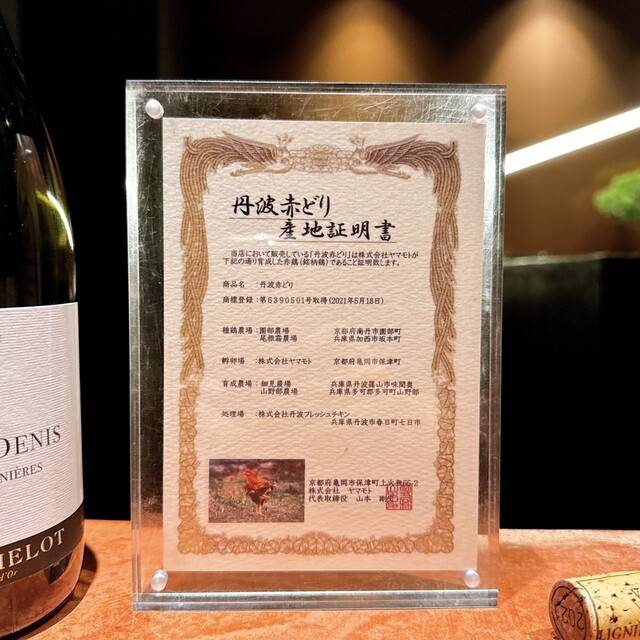 丹波赤どり
産地証明書
当店において販売している「丹波赤どり」は株式会社ヤマモトが
下記の通り育成した赤鶏(銘柄鶏)であること証明致します。
商品名 : 丹波赤どり
商標登録 : 第6390501号取得(2021年5月18日)
種鶏農場 : 園部農場 京都府南丹市園部町
尾根霧農場 兵庫県加西市坂本町
孵卵場 : 株式会社ヤマモト 京都府亀岡市保津町
育成農場 : 細見農場 兵庫県丹波篠山市味間奥
山野部農場 兵庫県多可郡多可町山野部
処理場 : 株式会社丹波フレッシュチキン
兵庫県丹波市春日町七日市
京都府亀岡市保津町上火無66-2
株式会社 ヤマモト
代表取締役 山本 剛
DENIS
NIÈRES
d'Or
LIGNI